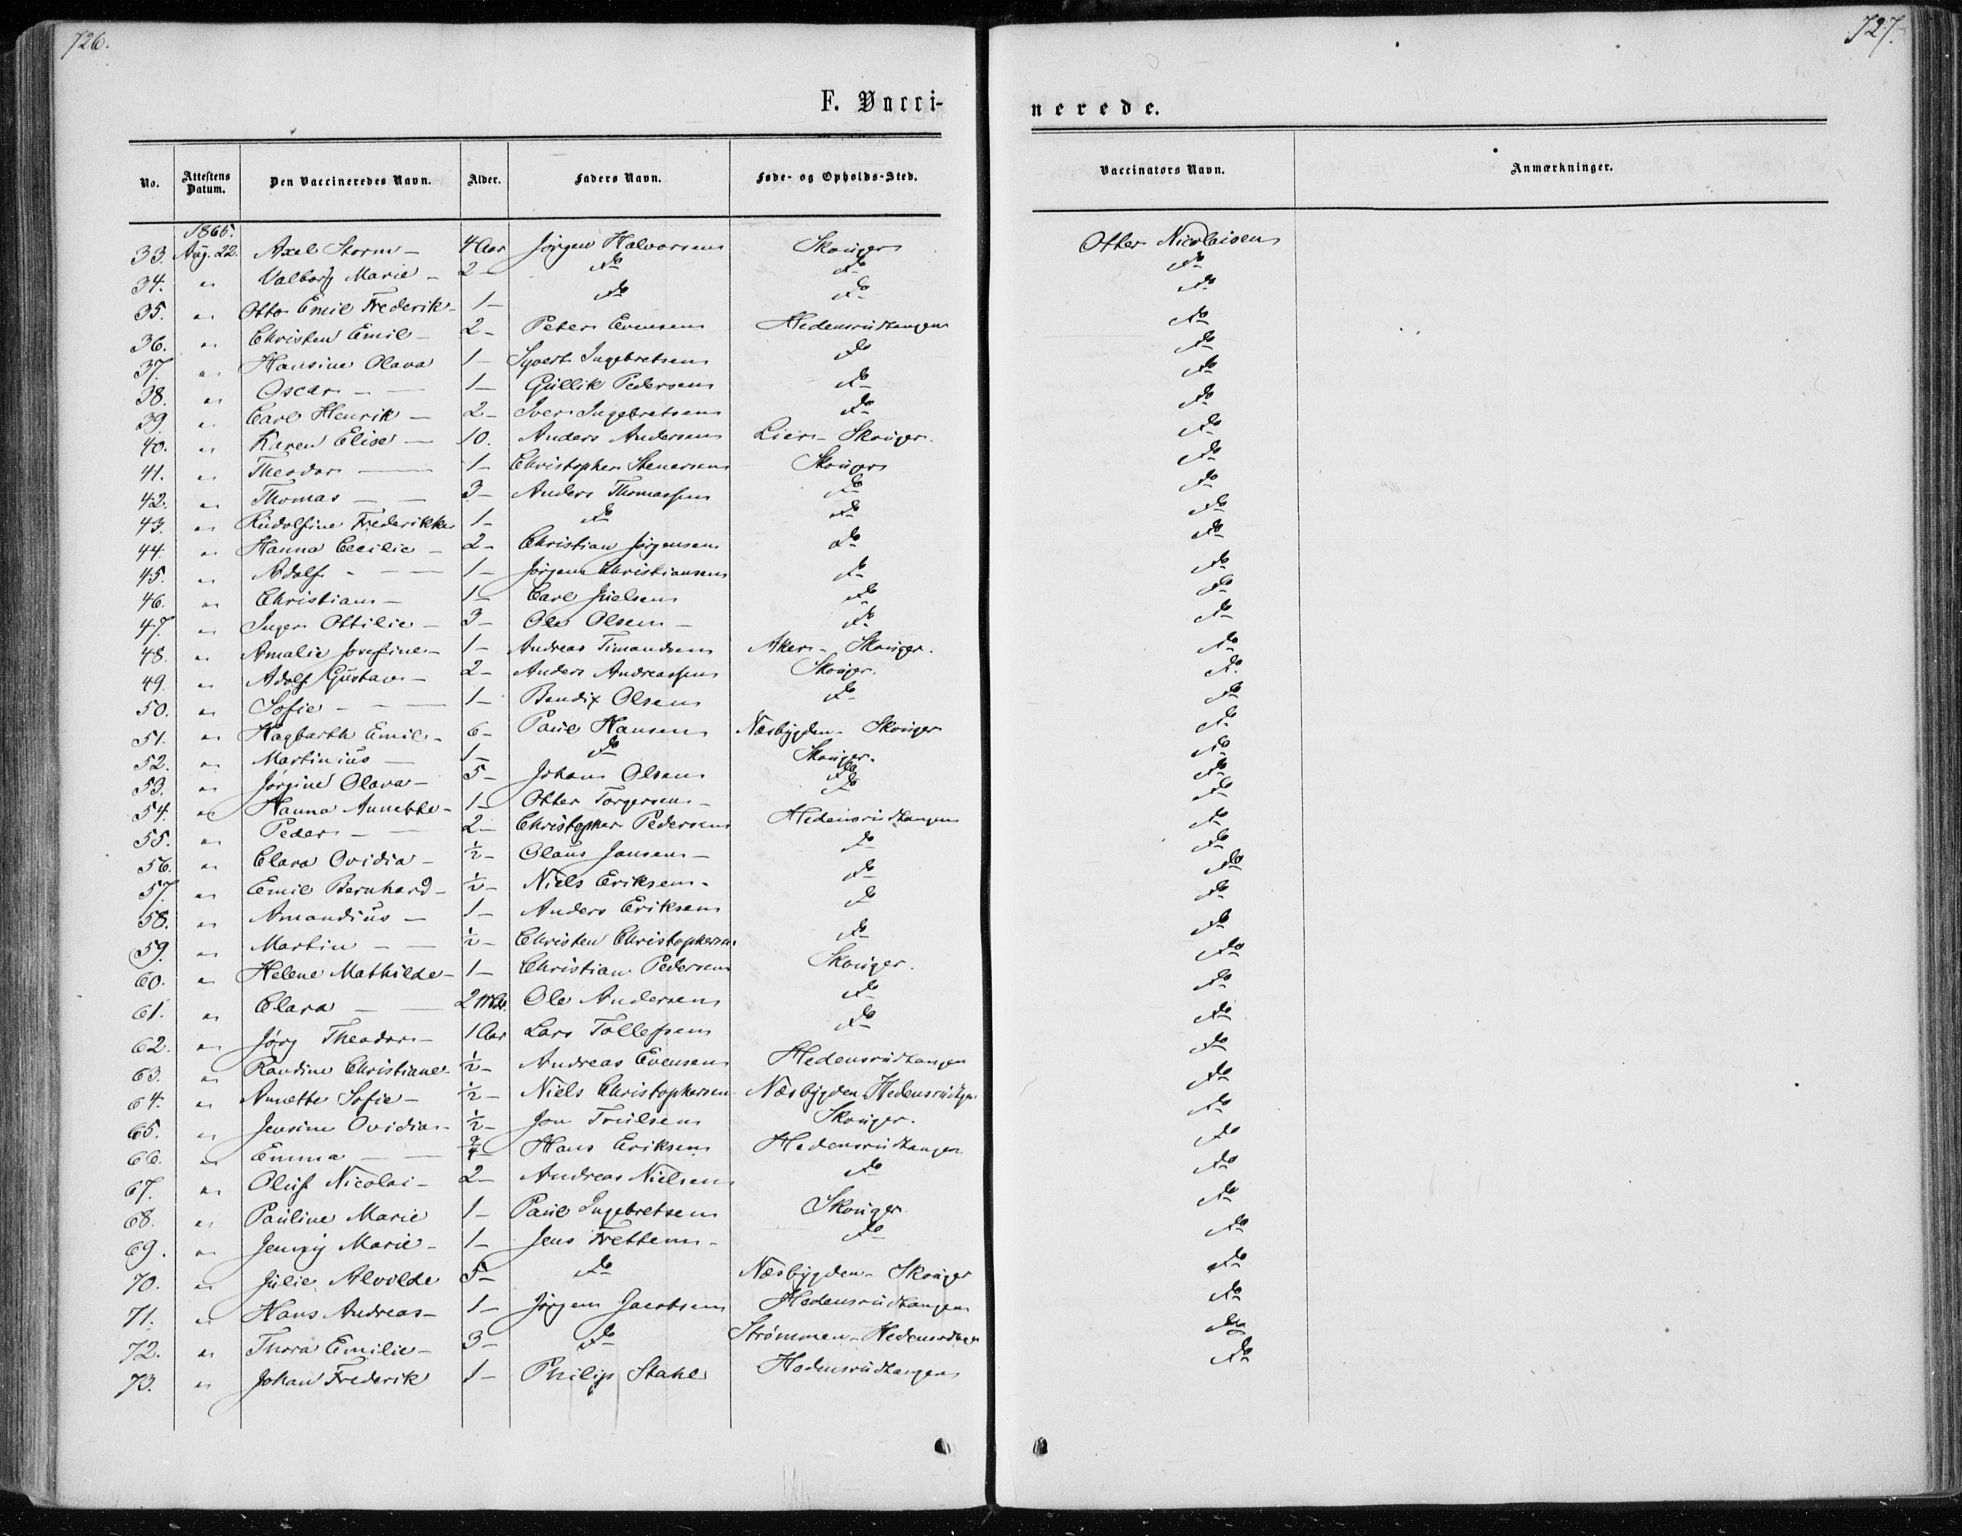 726.
727.
F. Vacci-
nerede.
No. Attestens Datum. Den Vaccineredes Navn. Alder. Faders Navn. Føde- og Opholds-Sted. Vaccinators Navn. Anmærkninger.
1865.
33. Aug. 22. Axel Storm - 4 Aar Jørgen Halvorsen Skouger Otter Nicolaisen
34. " Valborg Marie - 2 - Do Do Do
35. " Otto Emil Frederik - 1 - Do Do Do
36. " Christen Emil - 2 - Peter Evensen Hedensrudtangen Do
37. " Hansine Olava 1 - Syvert Ingebretsen Do Do
38. " Oscar - 1 - Gullik Pedersen Do Do
39. " Carl Henrik - 2 - Iver Ingebretsen Do Do
40. " Karen Elise - 10. Anders Andersen Lier - Skouger. Do
41. " Theodor - 1 - Christopher Stenersen Skouger Do
42. " Thomas - 3 - Anders Thomassen Do Do
43. " Rudolfine Frederikke 1 - Do Do Do
44. " Hanna Cecilie - 2 - Christian Jørgensen Do Do
45. " Adolf - 1 - Jørgen Christiansen Do Do
46. " Christian - 1 - Carl Juelsen Do Do
47. " Inger Ottilie - 3 - Ole Olsen - Do Do
48. " Amalie Josefine - 1 - Andreas Timandsen Aker - Skouger. Do
49. " Adolf Gustav - 2 - Anders Andreassen Skouger. Do
50. " Sofie - 1 - Bendix Olsen Do Do
51. " Hagbarth Emil - 6 - Paul Hansen Næsbygden - Skouger Do
52. " Martinius - 1 - Do Skouger. Do
53. " Jørgine Olava - 5 - Johan Olsen Do Do
54. " Hanna Annette - 1 - Otter Torgersen - Do Do
55. " Peder - 2 - Christopher Pedersen Hedensrudtangen Do
56. " Clara Ovidia - ½ - Olaus Jansen - Do Do
57. " Emil Bernhard - ½ - Niels Eriksen - Do Do
58. " Amandius - 1 - Anders Eriksen Do Do
59. " Martin - ½ - Christen Christophersen Do Do
60. " Helene Mathilde - 1 - Christian Pedersen Skouger. Do
61. " Clara - 2 Mdr. Ole Andersen Do Do
62. " Jørg Theodor - 1 Aar Lars Tollefsen Do Do
63. " Randine Christiane ½ - Andreas Evensen Hedensrudtangen Do
64. " Annette Sofie - ½ - Niels Christophersen Næsbygden Hedensrudtgn Do
65. " Jensine Ovidia - ½ - Jon Truelsen Skouger. Do
66. " Emma - Hans Eriksen Hedensrudtangen Do
67. " Oluf Nicolai - 2 - Andreas Nielsen Do Do
68. " Pauline Marie 1 - Paul Ingebretsen Skouger. Do
69. " Jenny Marie - 1 - Jens Fretten - Do Do
70. " Julie Alvilde 5 - Do Næsbygden - Skouger Do
71. " Hans Andreas - 1 - Jørgen Jacobsen Hedensrudtangen Do
72. " Thora Emilie - 3 - Do Strømmen - Do
73. " Johan Frederik 1 - Philip Stahl Hedensrudtangen Do